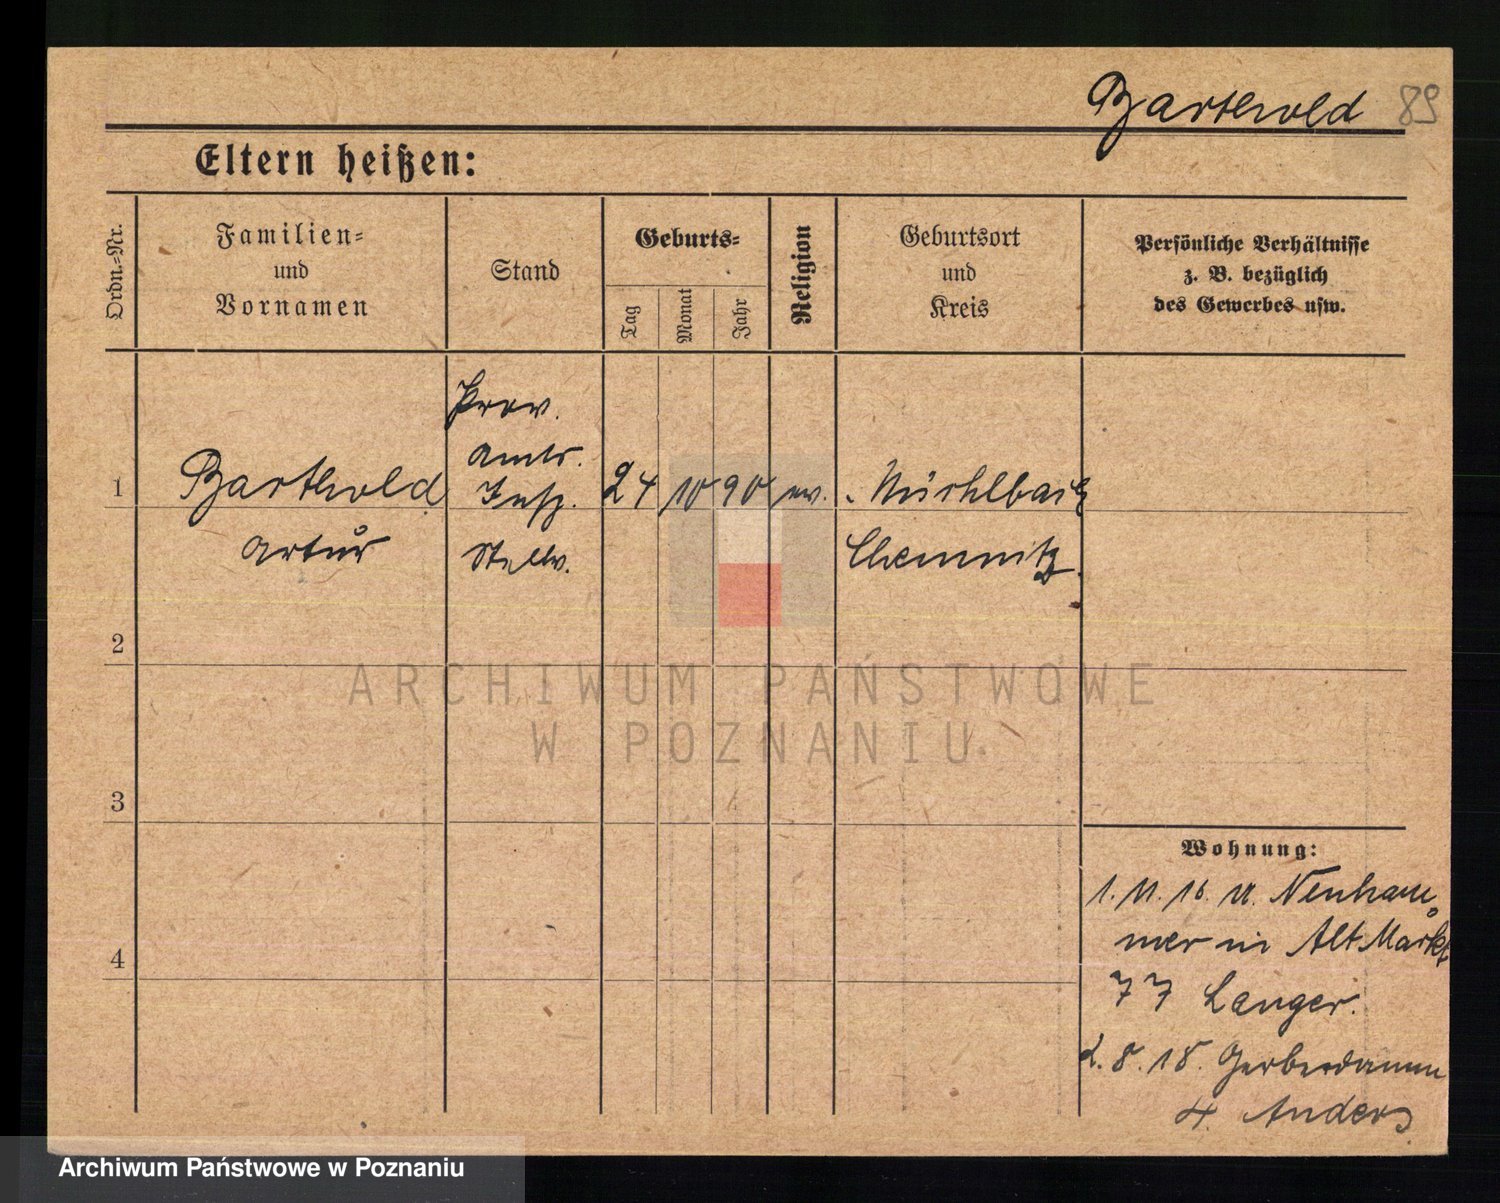 Barthold 89
Eltern heißen:
Ordn.-Nr.
Familien-
und
Vornamen
Stand
Geburts-
Tag
Monat
Jahr
Religion
Geburtsort
und
Kreis
Persönliche Verhältnisse
z. B. bezüglich
des Gewerbes usw.
1
Barthold
Artur
Prov.
Amts.
Insp.
Stellv.
24 10 90 ev.
Mühlbach
Chemnitz.
2
3
4
Wohnung:
1. 11. 16. v. Neuham-
mer in Alt Markt
77 Langer.
2. 8. 18. Gerberdamm
4. Anders
ARCHIWUM PAŃSTWOWE
W POZNANIU
Archiwum Państwowe w Poznaniu